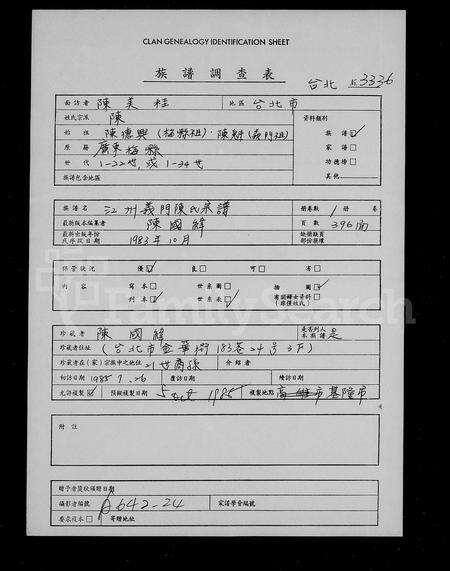 CLAN GENEALOGY IDENTIFICATION SHEET
族譜調查表
台北 3336
面訪者 陳美桂 地區 台北市
姓氏宗派 陳 資料類別
始祖 陳德興(梅縣祖)‧陳 (義門祖) 族譜 ✓
原籍 廣東梅縣 家譜 □
世代 1-22世, 或 1-34世 功德榜 □
族譜包含地區 其他
族譜名 江州義門陳氏宗譜 冊卷數 1 冊 卷
最新版本編纂者 陳國緯 頁數 396
最新出版年份 1983年10月
保管狀況 優 ✓ 良 □ 可 □ 劣 □
內容 寫本 □ 世系圖 □ 插圖 ✓
刊本 ✓ 世系表 ✓ 有關婦女資料 □
珍藏者 陳國緯 是否列入本族譜 是
珍藏者住址 (台北市金華街183巷24号3F)
珍藏者在(家)宗族中之地位 21世裔孫 介紹者
初訪日期 1985.7.26 覆訪日期 續訪日期
允許複製 ✓ 預擬複製日期 5 Oct 1985 複製地點 高雄市基隆市
附註
贈予者簽收捐贈日期
攝影者編號 A642-24 家譜學會編號
要求複本 □ 寄贈地址
FamilySearch